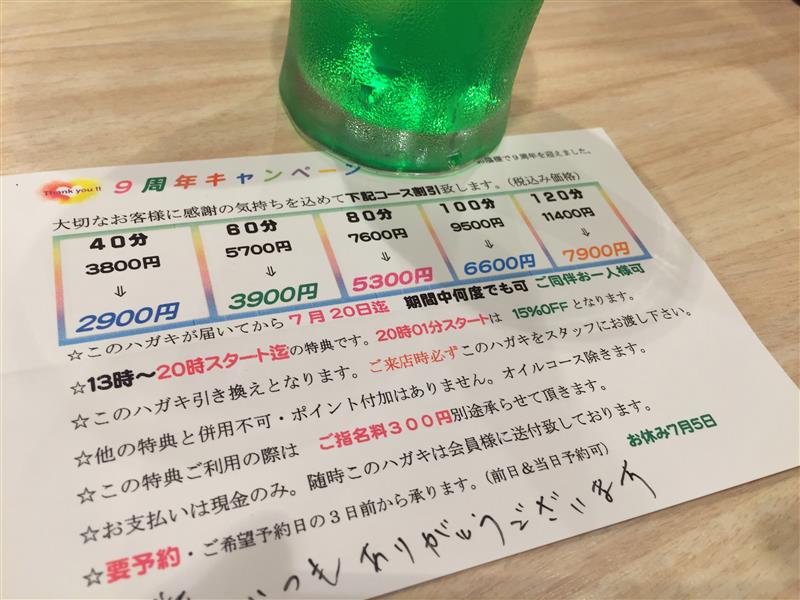 Thank you !!
9周年キャンペーン
お陰様で9周年を迎えました。
大切なお客様に感謝の気持ちを込めて下記コース割引致します。(税込み価格)
40分 60分 80分 100分 120分
3800円 5700円 7600円 9500円 11400円
⇓ ⇓ ⇓ ⇓ ⇓
2900円 3900円 5300円 6600円 7900円
☆このハガキが届いてから7月20日迄 期間中何度でも可 ご同伴お一人様可
☆13時～20時スタート迄の特典です。20時01分スタートは 15%OFFとなります。
☆このハガキ引き換えとなります。ご来店時必ずこのハガキをスタッフにお渡し下さい。
☆他の特典と併用不可・ポイント付加はありません。オイルコース除きます。
☆この特典ご利用の際は ご指名料300円別途承らせて頂きます。
☆お支払いは現金のみ。随時このハガキは会員様に送付致しております。
☆要予約・ご希望予約日の3日前から承ります。(前日&当日予約可) お休み7月5日
いつもありがとうございます